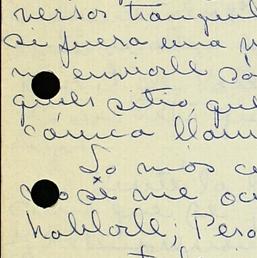 versos tranquil
si fuera una
enviarle
sitio, que
cómica llam
Lo más ce
se me oc
hablarle; Pero